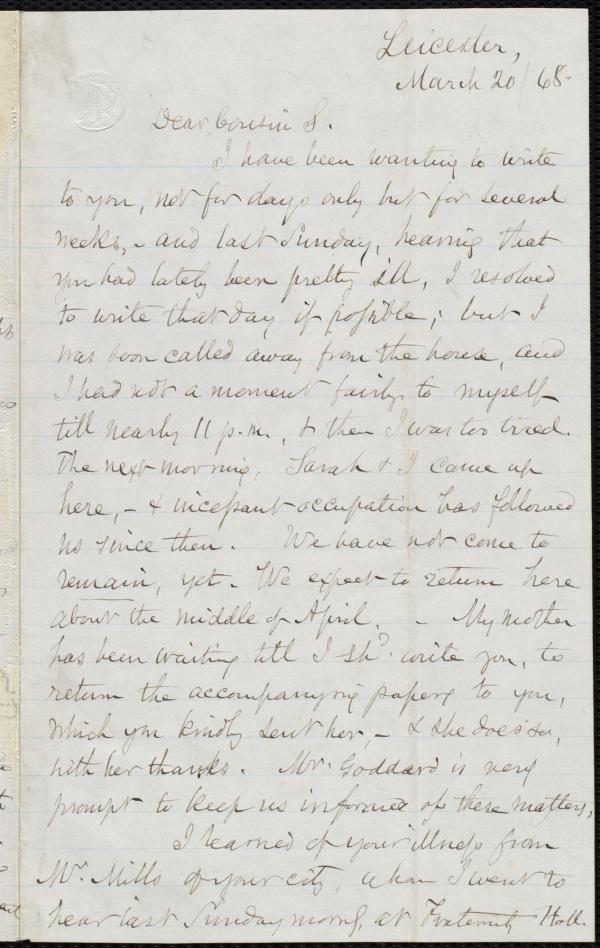 Leicester,
March 20/68.
Dear Cousin S.
I have been wanting to write
to you, not for days only but for several
weeks, - and last Sunday, hearing that
you had lately been pretty ill, I resolved
to write that day if possible; but I
was soon called away from the house, and
I had not a moment fairly to myself
till nearly 11 p.m., & then I was too tired.
The next morning, Sarah & I came up
here, - & incessant occupation has followed
us since then. We have not come to
remain, yet. We expect to return here
about the middle of April. - My mother
has been waiting till I shd. write you, to
return the accompanying papers to you,
which you kindly sent her, - & she does so,
with her thanks. Mr. Goddard is very
prompt to keep us informed of these matters.
I learned of your illness from
Mr. Mills of your city, whom I went to
hear last Sunday morng, at Fraternity Hall.